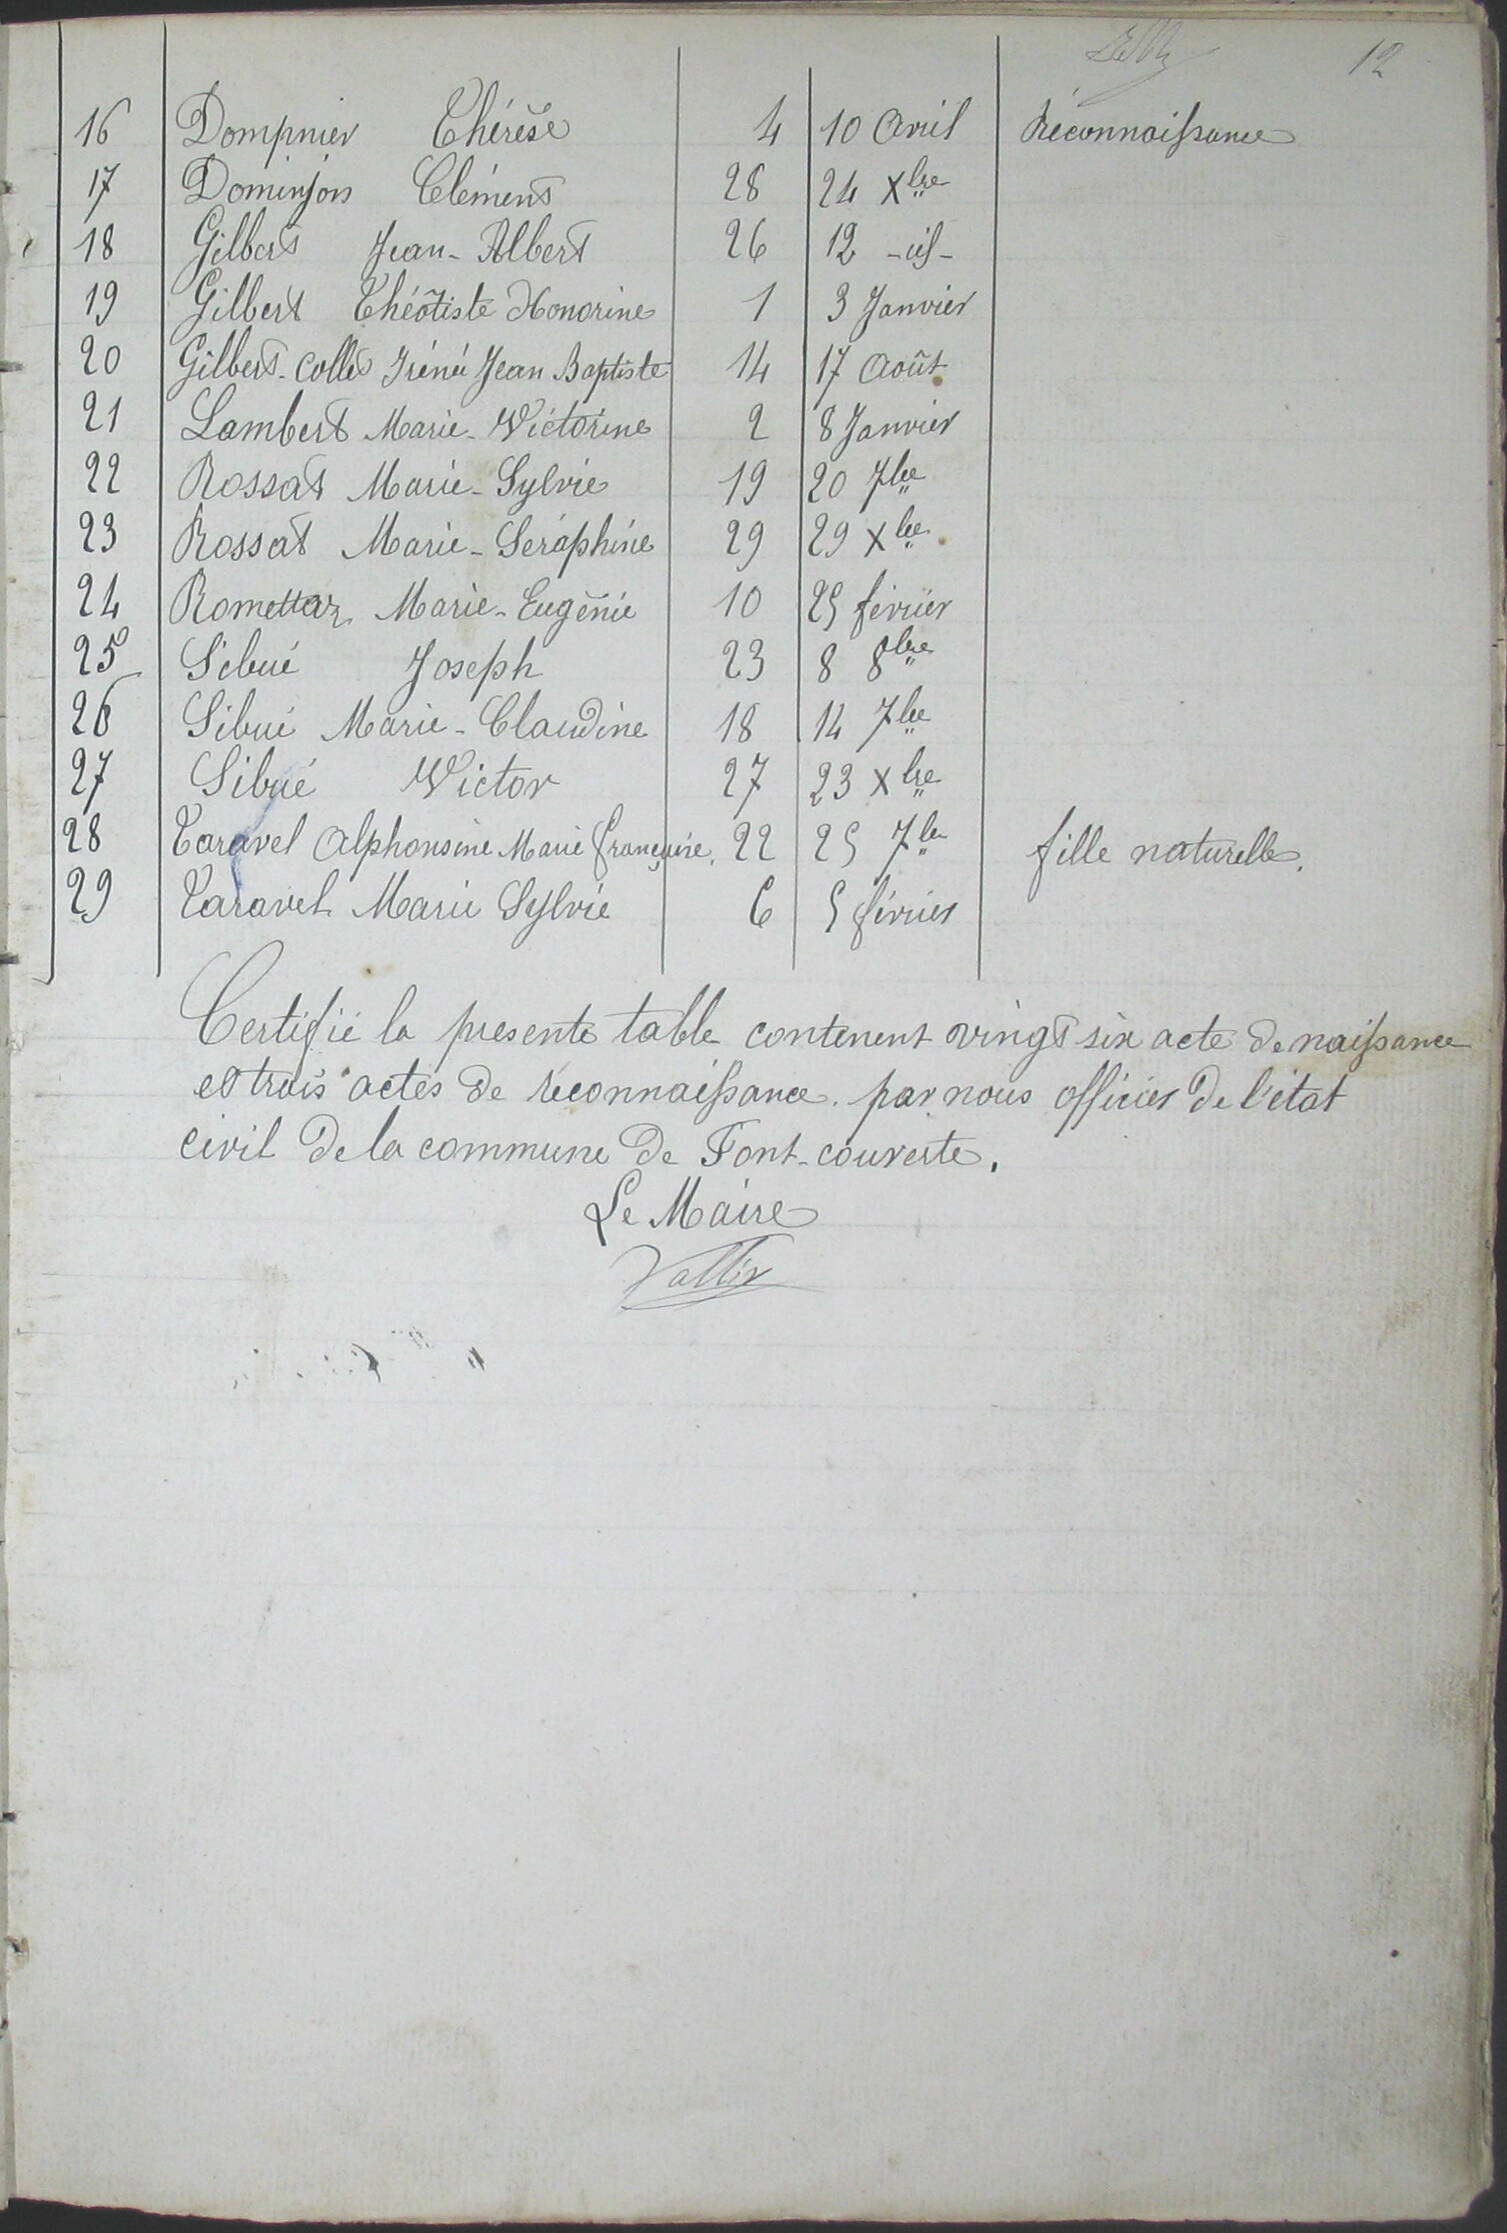 12
16 Dompnier Thérèse 4 10 Avril Réconnaissance
17 Dominjon Clément 28 24 Xbre
18 Gilbert Jean-Albert 26 12 -id-
19 Gilbert Théôtiste Honorine 1 3 Janvier
20 Gilbert-Collet Iréné Jean Baptiste 14 17 Août
21 Lambert Marie-Victorine 2 8 Janvier
22 Rossat Marie-Sylvie 19 20 7bre
23 Rossat Marie-Séraphine 29 29 Xbre
24 Romettaz Marie-Eugénie 10 25 févrièr
25 Sibué Joseph 23 8 8bre
26 Sibué Marie-Claudine 18 14 7bre
27 Sibué Victor 27 23 Xbre
28 Taravel Alphonsine Marie françoise, 22 25 7bre fille naturelle,
29 Taravel Marie Sylvie 6 5 février
Certifié la presente table contenent vingt six acte de naissance
et trois actes de réconnaissance. par nous officier de l'état
civil de la commune de Font-couverte,
Le Maire